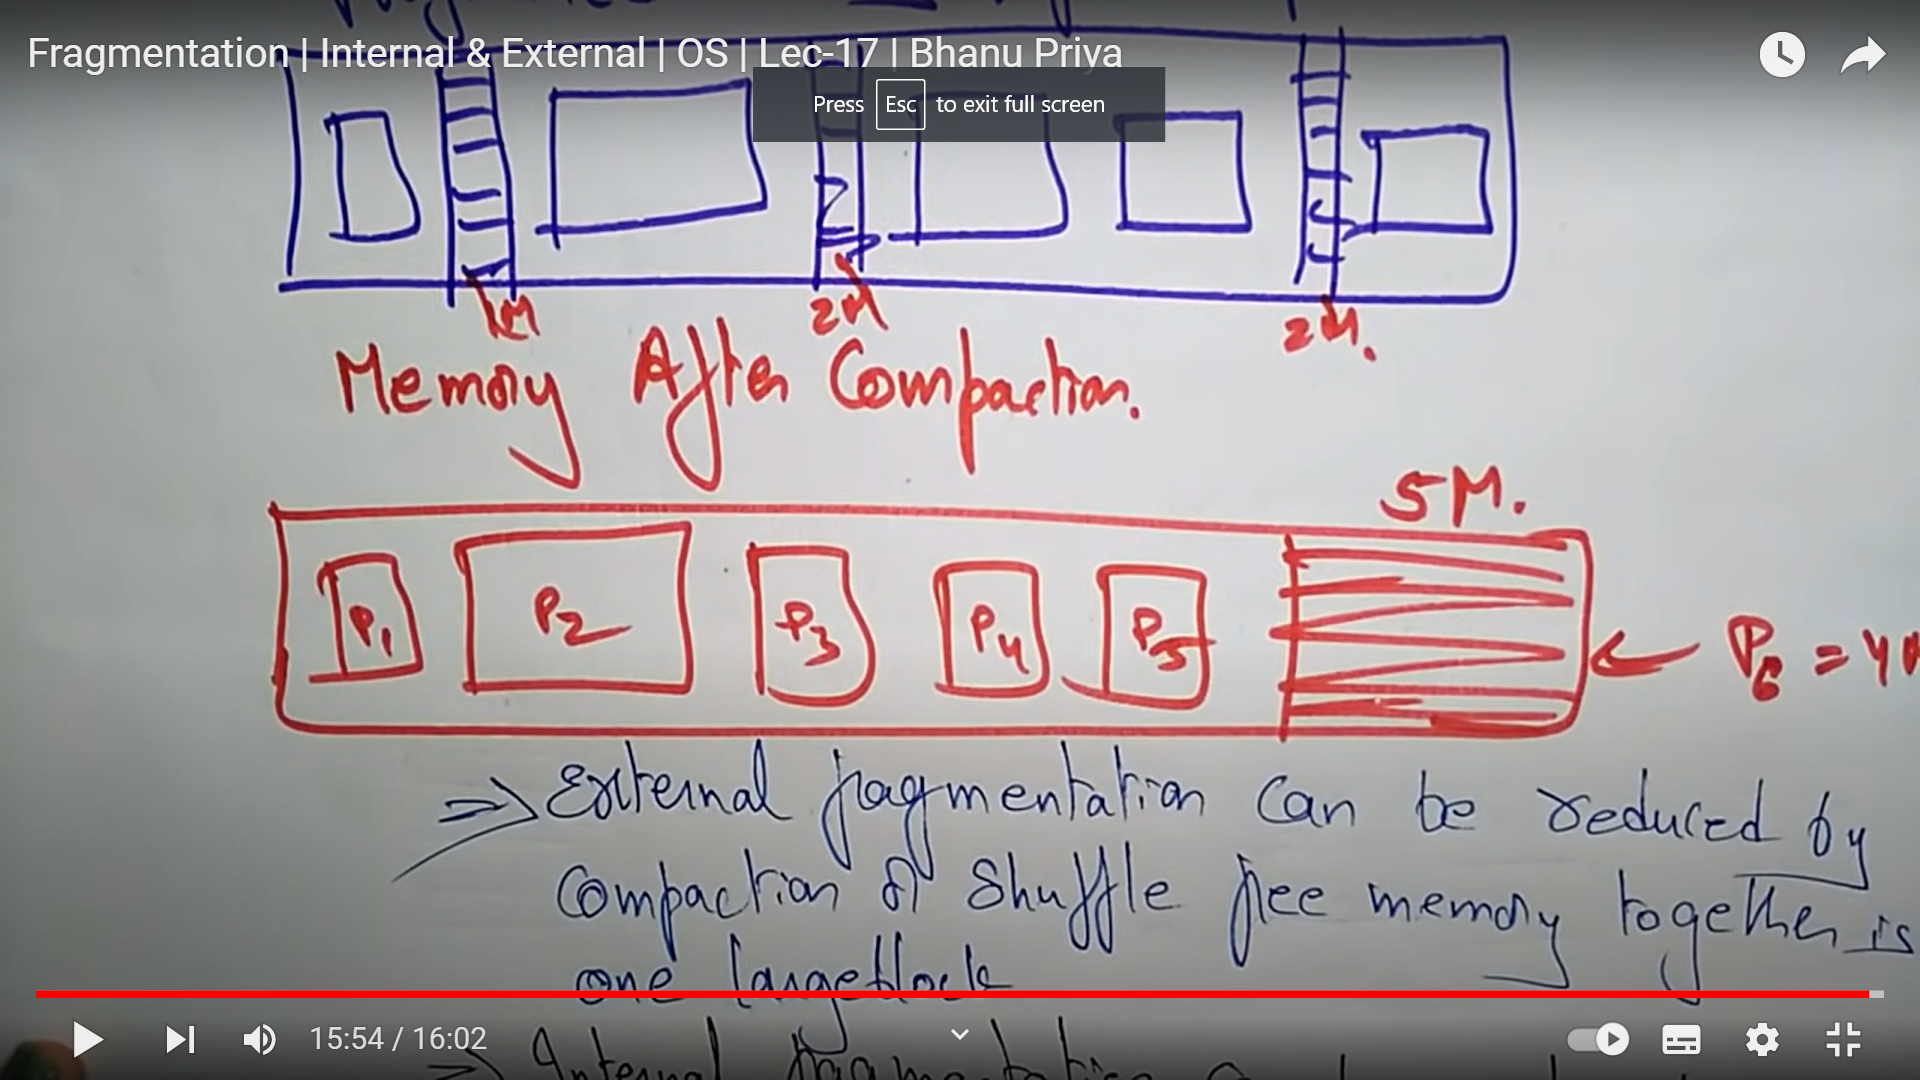 Fragmentation | Internal & External | OS | Lec-17 | Bhanu Priya
Press Esc to exit full screen
1M 2M 2M.
Memory After Compaction.
5M.
P1 P2 P3 P4 P5
P6 = 4
⇒ External fragmentation can be reduced by
Compaction or Shuffle free memory together is
one large block
⇒ Internal fragmentation
15:54 / 16:02